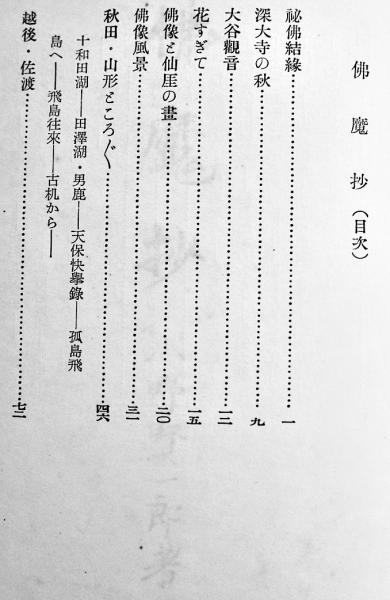 佛魔抄（目次）
祕佛結緣……一
深大寺の秋……九
大谷觀音……一二
花すぎて……一五
佛像と仙厓の畫……二〇
佛像風景……三一
秋田・山形ところ〴〵……四六
十和田湖――田澤湖・男鹿――天保快擧錄――孤島飛
島へ――飛島往來――古机から――
越後・佐渡……七二